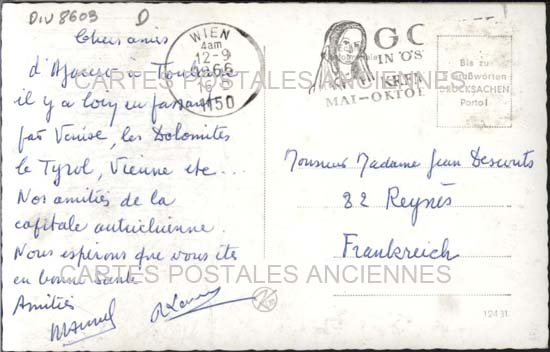 DIV 8609 D
Chers amis
d'Ajaccio a Toulouse
il y a loin en passant
par Venise, les Dolomites
le Tyrol, Vienne etc...
Nos amitiés de la
capitale autrichienne.
Nous espérons que vous êtes
en bonne santé
Amitiés
WIEN
4am
12-9
1966
16-
1150
GO
IN ÖS
KREM
MAI-OKTOB
Bis zu
Grußworten
DRUCKSACHEN
Porto!
Monsieur Madame Jean Descouts
82 Reyniès
Frankreich
12431
CARTES POSTALES ANCIENNES
CARTES POSTALES ANCIENNES